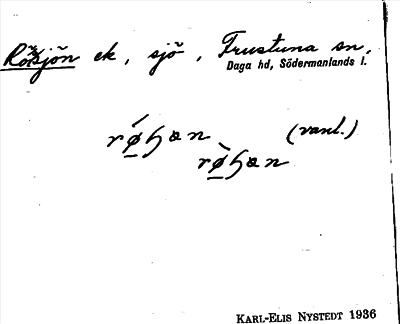 Rösjön ek, sjö, Frustuna sn,
Daga hd, Södermanlands l.
(vanl.)
KARL-ELIS NYSTEDT 1936